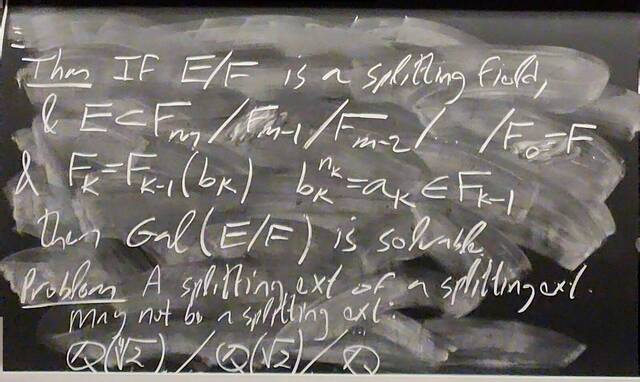 Thm IF E/F is a splitting field,
& E ⊂ Fm / Fm-1 / Fm-2 / . . /F₀=F
& Fₖ=Fₖ₋₁(bₖ) bₖ^nₖ=aₖ ∈ Fₖ₋₁
then Gal(E/F) is solvable
Problem A splitting ext of a splitting ext.
may not be a splitting ext.
Q(∜2) / Q(√2) / Q